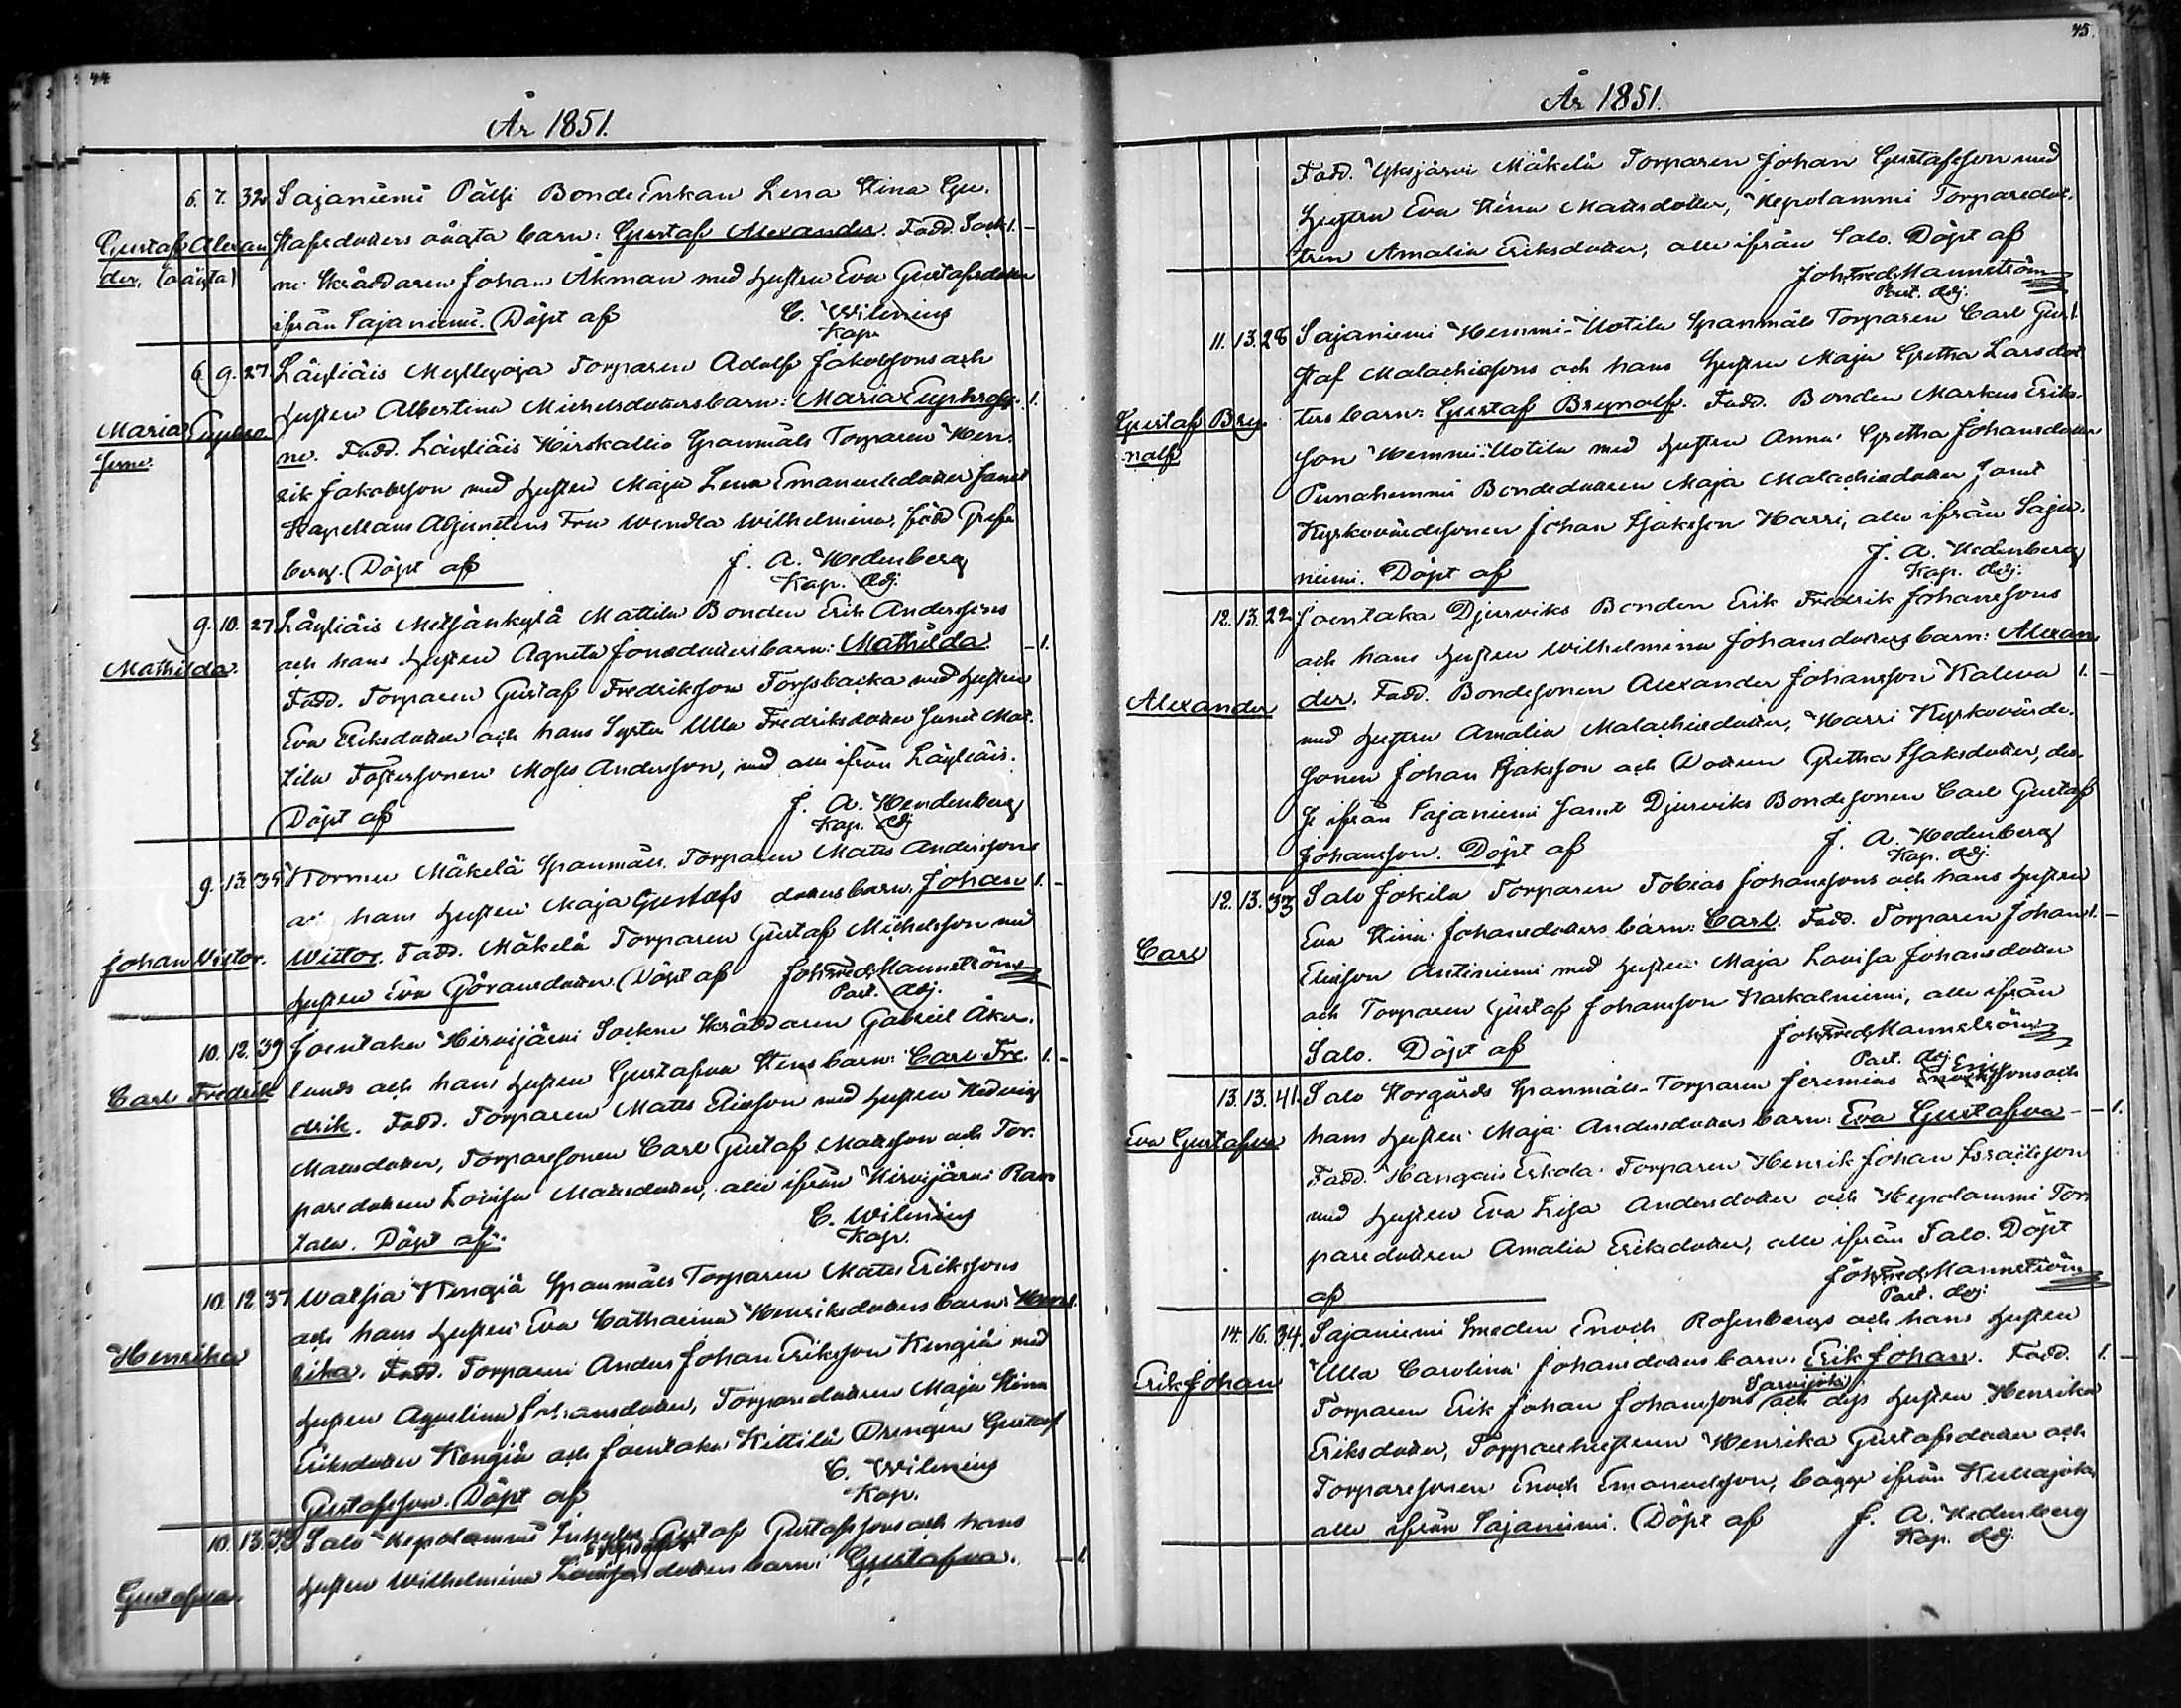 44
År 1851.
6. 7. 32. Sajaniemi Pälsi Bonde Enkan Lena Stina Gu-
Gustaf Alexan stafsdotters oägta barn: Gustaf Alexander. Fadd. Sock- 1. -
der, (oägta) ne Skräddaren Johan Åkman med hustru Eva Gustafsdotter
ifrån Sajaniemi. Döpt af C. Wilenius
Kap.
6. 9. 27. Läyliäis Myllyoja Torparen Adolf Jakobssons och
hustru Albertina Michelsdotters barn: Maria Euphrosy- 1.
Maria Euphro- ne. Fadd. Läyliäis Hirskallio Spanmåls Torparen Hen-
syne. rik Jakobsson med hustru Maja Lena Emanuelsdotter samt
Kapellans Adjunctens Fru Wendla Wilhelmina, född
berg. Döpt af J. A. Hedenberg
Kap. Adj.
9. 10. 27. Läyliäis Metsänkylä Mattila Bonden Erik Anderssons
och hans hustru Agneta Jonsdotters barn: Mathilda. - 1.
Mathilda. Fadd. Torparen Gustaf Fredriksson Torpsbacka med hustru
Eva Eriksdotter och hans Syster Ulla Fredriksdotter samt Mat-
tila Fostersonen Moses Andersson, med alle ifrån Läyliäis.
Döpt af J. A. Hendenberg
Kap. Adj.
9. 13. 35. Kormu Mäkelä Spanmåls Torparen Matts Anderssons
och hans hustru Maja Gustafs dotters barn: Johan 1. -
Johan Victor. Wittor. Fadd. Mäkelä Torparen Gustaf Michelsson med
hustru Eva Göransdotter. Döpt af Joh. Fred. Mannström
Past. Adj.
10. 12. 39. Joentaka Hirvijärvi Sockne Skräddaren Gabriel Åker-
Carl Fredrik lunds och hans hustru Gustafva Stens barn: Carl Fre- 1. -
drik. Fadd. Torparen Matts Eliesson med hustru Hedvig
Mattsdotter, Torparesonen Carl Gustaf Mattsson och Tor-
paredottren Lovisa Mattsdotter, alle ifrån Hirvijärvi Ran-
tala. Döpt af C. Wilenius
Kap.
10. 12. 37. Watsia Kengiä Spanmåls Torparen Matts Erikssons
och hans hustru Eva Catharina Henriksdotters barn: Hen- 1.
Henrika rika. Fadd. Torparen Anders Johan Eriksson Kengiä med
hustru Aqvelina Johansdotter, Torparedottren Maja Stina
Eriksdotter Kengiä och Joentaka Kittilä Drengen Gustaf
Gustafsson. Döpt af C. Wilenius
Kap.
10. 13. 39. Salo Hepolammi Gustaf Gustafssons och hans
hustru Wilhelmina Lovisa dotters barn: Gustafva. - 1.
Gustafva.
45.
År 1851.
Fadd. Yksjärvi Mäkelä Torparen Johan Gustafsson med
hustru Eva Stina Mattsdotter, Hepolammi Torparedot-
tren Amalia Eriksdotter, alle ifrån Salo. Döpt af
Joh. Fred. Mannström
Past. Adj.
11. 13. 28. Sajaniemi Hemmi-Uotila Spanmåls Torparen Carl Gu- 1.
staf Malachiessons och hans hustru Maja Gretha Larsdot-
Gustaf Bry- ters barn: Gustaf Brynolf. Fadd. Bonden Markus Eriks-
nolf son Hemmi-Uotila med hustru Anna Gretha Johansdotter
Punahemmi Bondedottren Maja Malachiedotter samt
Kyrkovärdesonen Johan Isaksson Harri, alle ifrån Saja-
niemi. Döpt af J. A. Hedenberg
Kap. Adj.
12. 13. 22. Joentaka Djurviks Bonden Erik Fredrik Johanssons
och hans hustru Wilhelmina Johansdotters barn: Alexan-
Alexander der. Fadd. Bondesonen Alexander Johansson Kaleva 1. -
med hustru Amalia Malachiedotter, Harri Kyrkovärde-
sonen Johan Isaksson och Dottren Gretha Isaksdotter, des-
se ifrån Sajaniemi samt Djurviks Bondesonen Carl Gustaf
Johansson. Döpt af J. A. Hedenberg
Kap. Adj.
12. 13. 33. Salo Jokila Torparen Tobias Johanssons och hans hustru
Carl Eva Stina Johansdotters barn: Carl. Fadd. Torparen Johan 1. -
Eliesson Antiniemi med hustru Maja Lovisa Johansdotter
och Torparen Gustaf Johansson Kaskalniemi, alle ifrån
Salo. Döpt af Joh. Fred. Mannström
Past. Adj.
13. 13. 41. Salo Storgårds Spanmåls-Torparen Jeremias Erikssons och
Eva Gustafva hans hustru Maja Andersdotters barn: Eva Gustafva - - 1.
Fadd. Hangais Eskola Torparen Henrik Johan Israelsson
med hustru Eva Lisa Andersdotter och Hepolammi Tor-
paredottren Amalia Eriksdotter, alle ifrån Salo. Döpt
af Joh. Fred. Mannström
Past. Adj.
14. 16. 34. Sajaniemi Smeden Enoch Rosenbergs och hans hustru
Erik Johan Ulla Carolina Johansdotters barn: Erik Johan. Fadd. 1. -
Torparen Erik Johan Johanssons Sarvijoki och dess hustru Henrika
Eriksdotter, Torparehustrun Henrika Gustafsdotter och
Torparesonen Enoch Emanuelsson, bägge ifrån Kullajoki,
alle ifrån Sajaniemi. Döpt af J. A. Hedenberg
Kap. Adj.